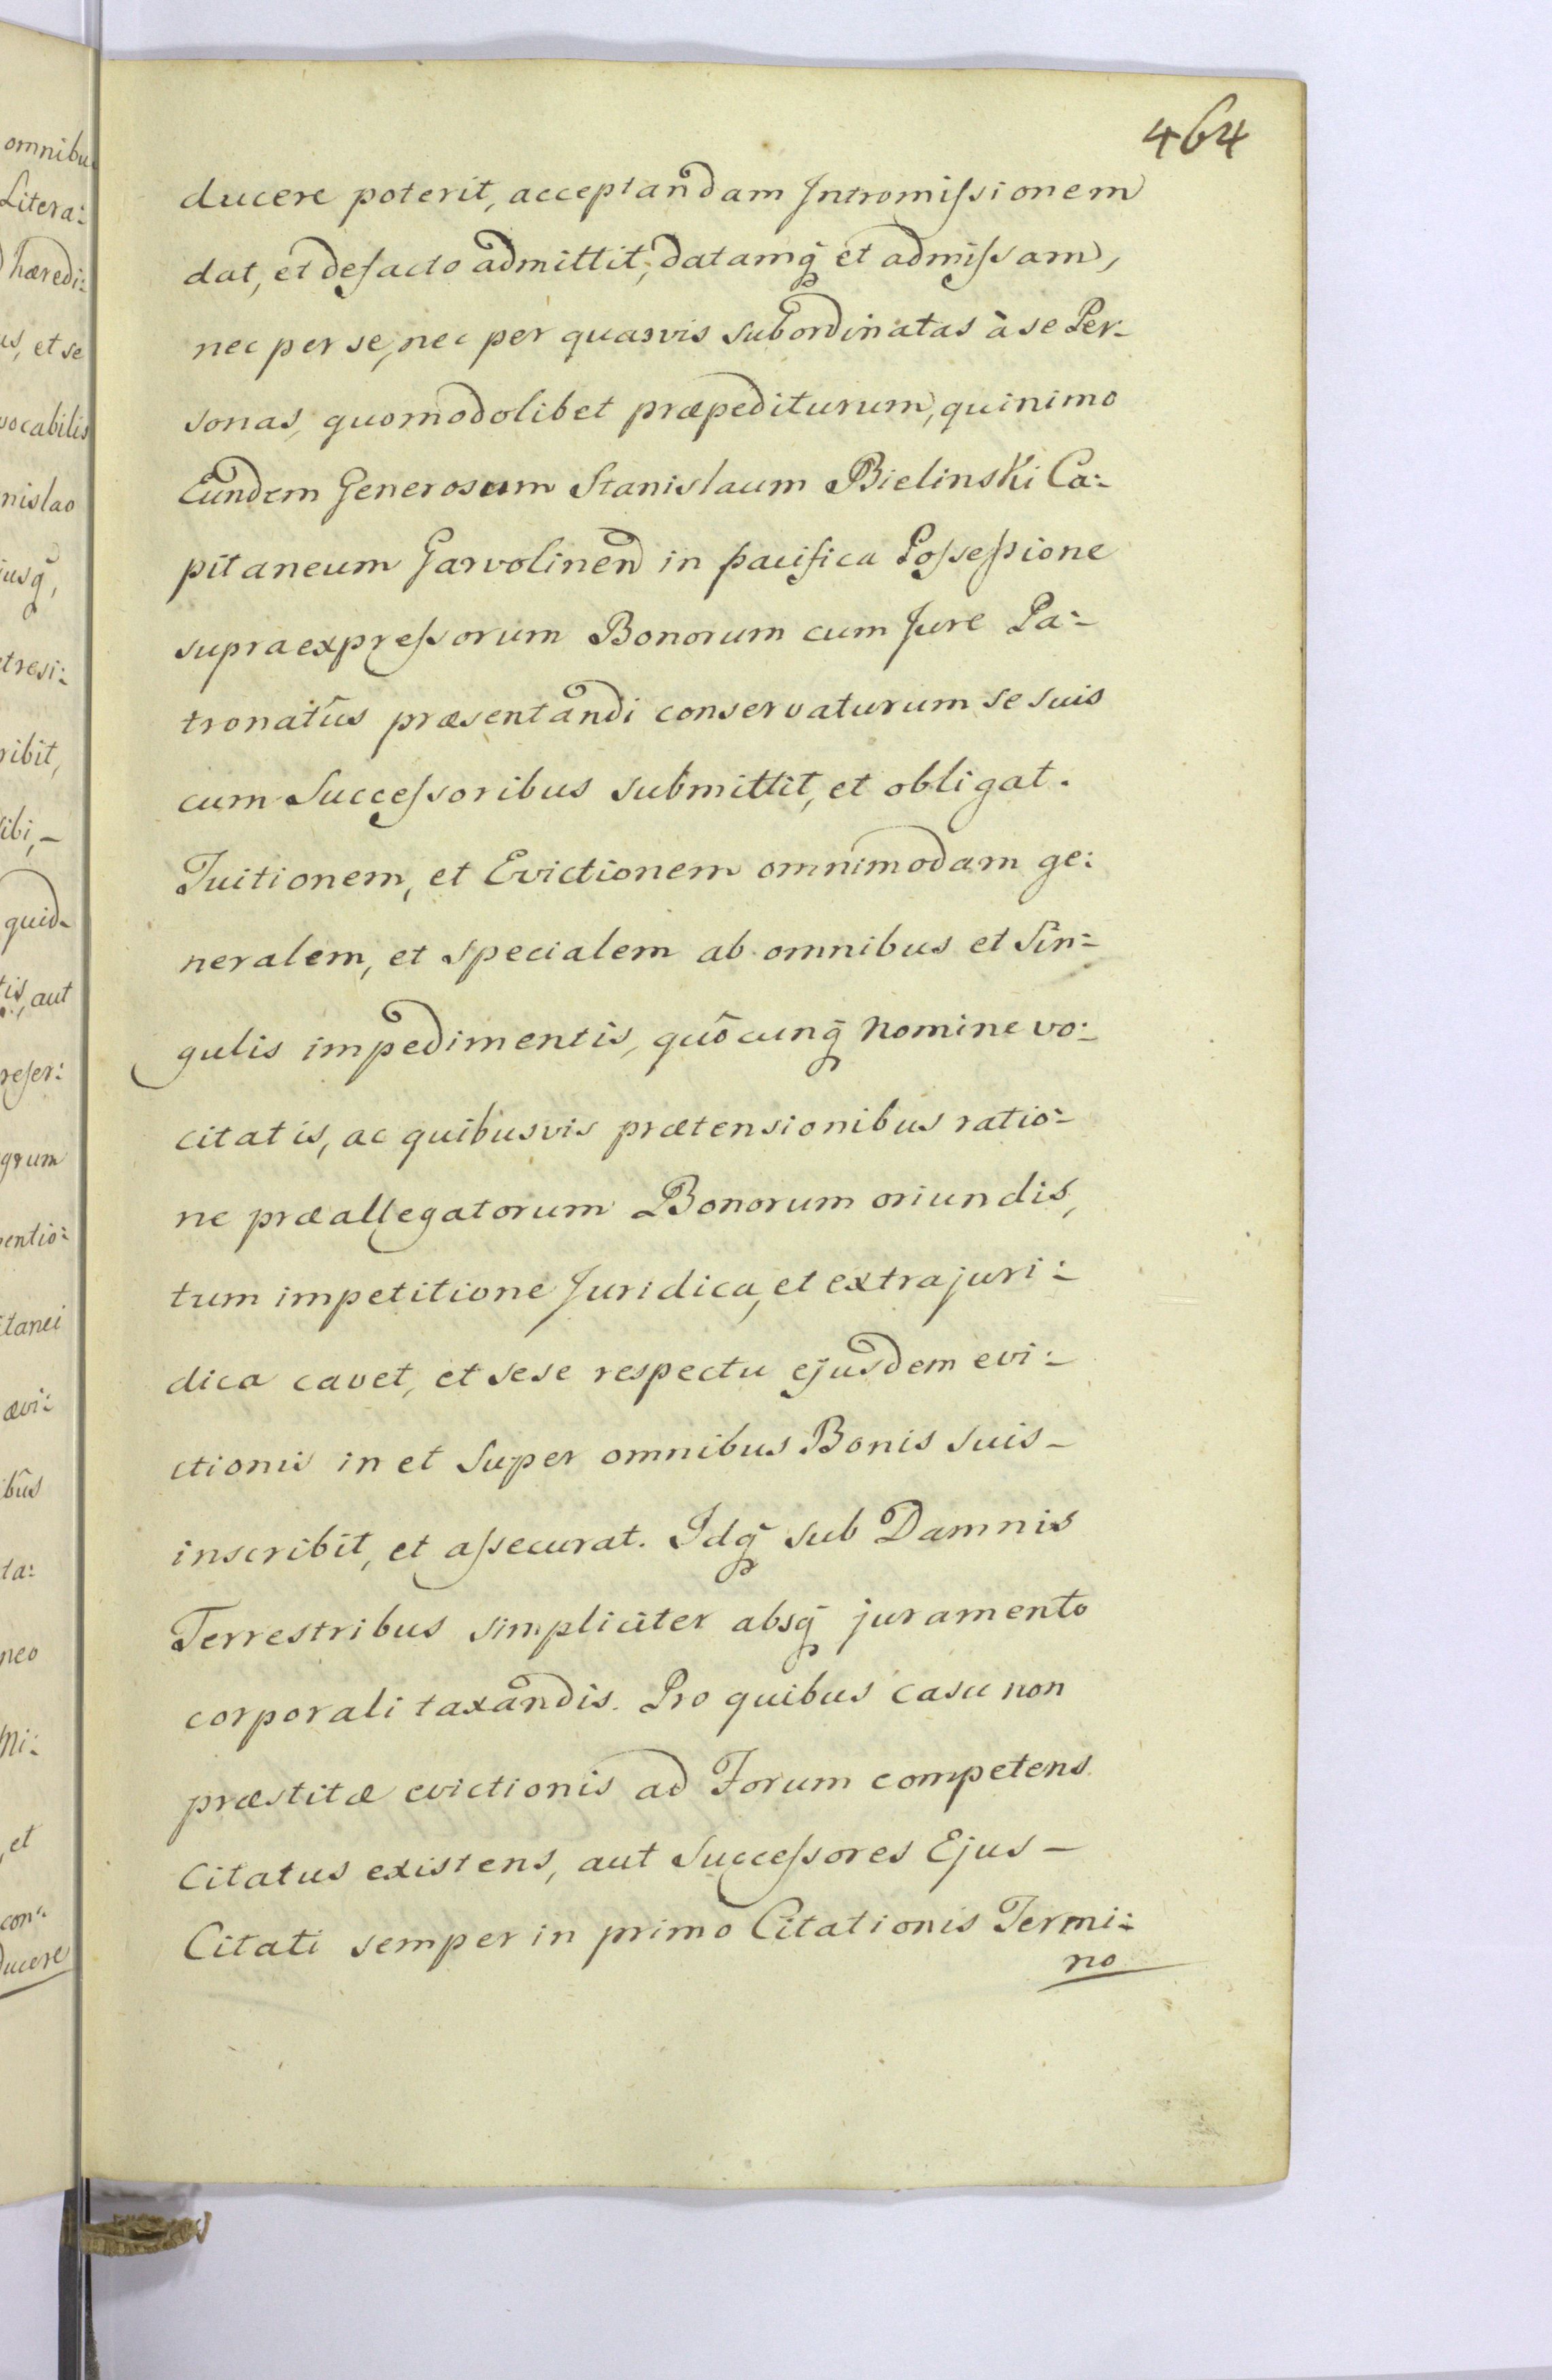 464
omnibu
Litera:
hæredi:
us, et se
vocabilis
nislao
iusq́,
etresi:
ribit,
sibi, –
quid–
tis, aut
refer:
grum
ventio:
itanei
ævi:
ibûs
ta:
neo
Mi:
, et
con:
ducere
ducere poterit, acceptandam Intromiſsionem
dat, et defacto admittit, datamq́ et admiſsam,
nec per se, nec per quasvis subordinatas à se Per–
sonas, quomodolibet præpediturum, quinimo
Eundem Generosum Stanislaum Bielinski Ca:
pitaneum Garvolinen in pacifica Poſseſsione
supraexpreſsorum Bonorum cum Jure Pa:
tronatûs præsentandi conservaturum se suis
cum Succeſsoribus submittit, et obligat.
Tuitionem, et Evictionem omnimodam ge:
neralem, et specialem ab omnibus et Sin:
gulis impedimentis, quôcunq́ Nomine vo:
citatis, ac quibusvis prætensionibus ratio:
ne præallegatorum Bonorum oriundis,
tum impetitione Juridica, et extrajuri:
dica cavet, et sese respectu ejusdem evi:
ctionis in et Super omnibus Bonis suis –
inscribit, et aſsecurat. Idq́ sub Damnis
Terrestribus simpliciter absq́ juramento
corporali taxandis. Pro quibus casu non
præstitæ evictionis ad Forum competens
Citatus existens, aut Succeſsores Ejus –
Citati semper in primo Citationis Termi:
no